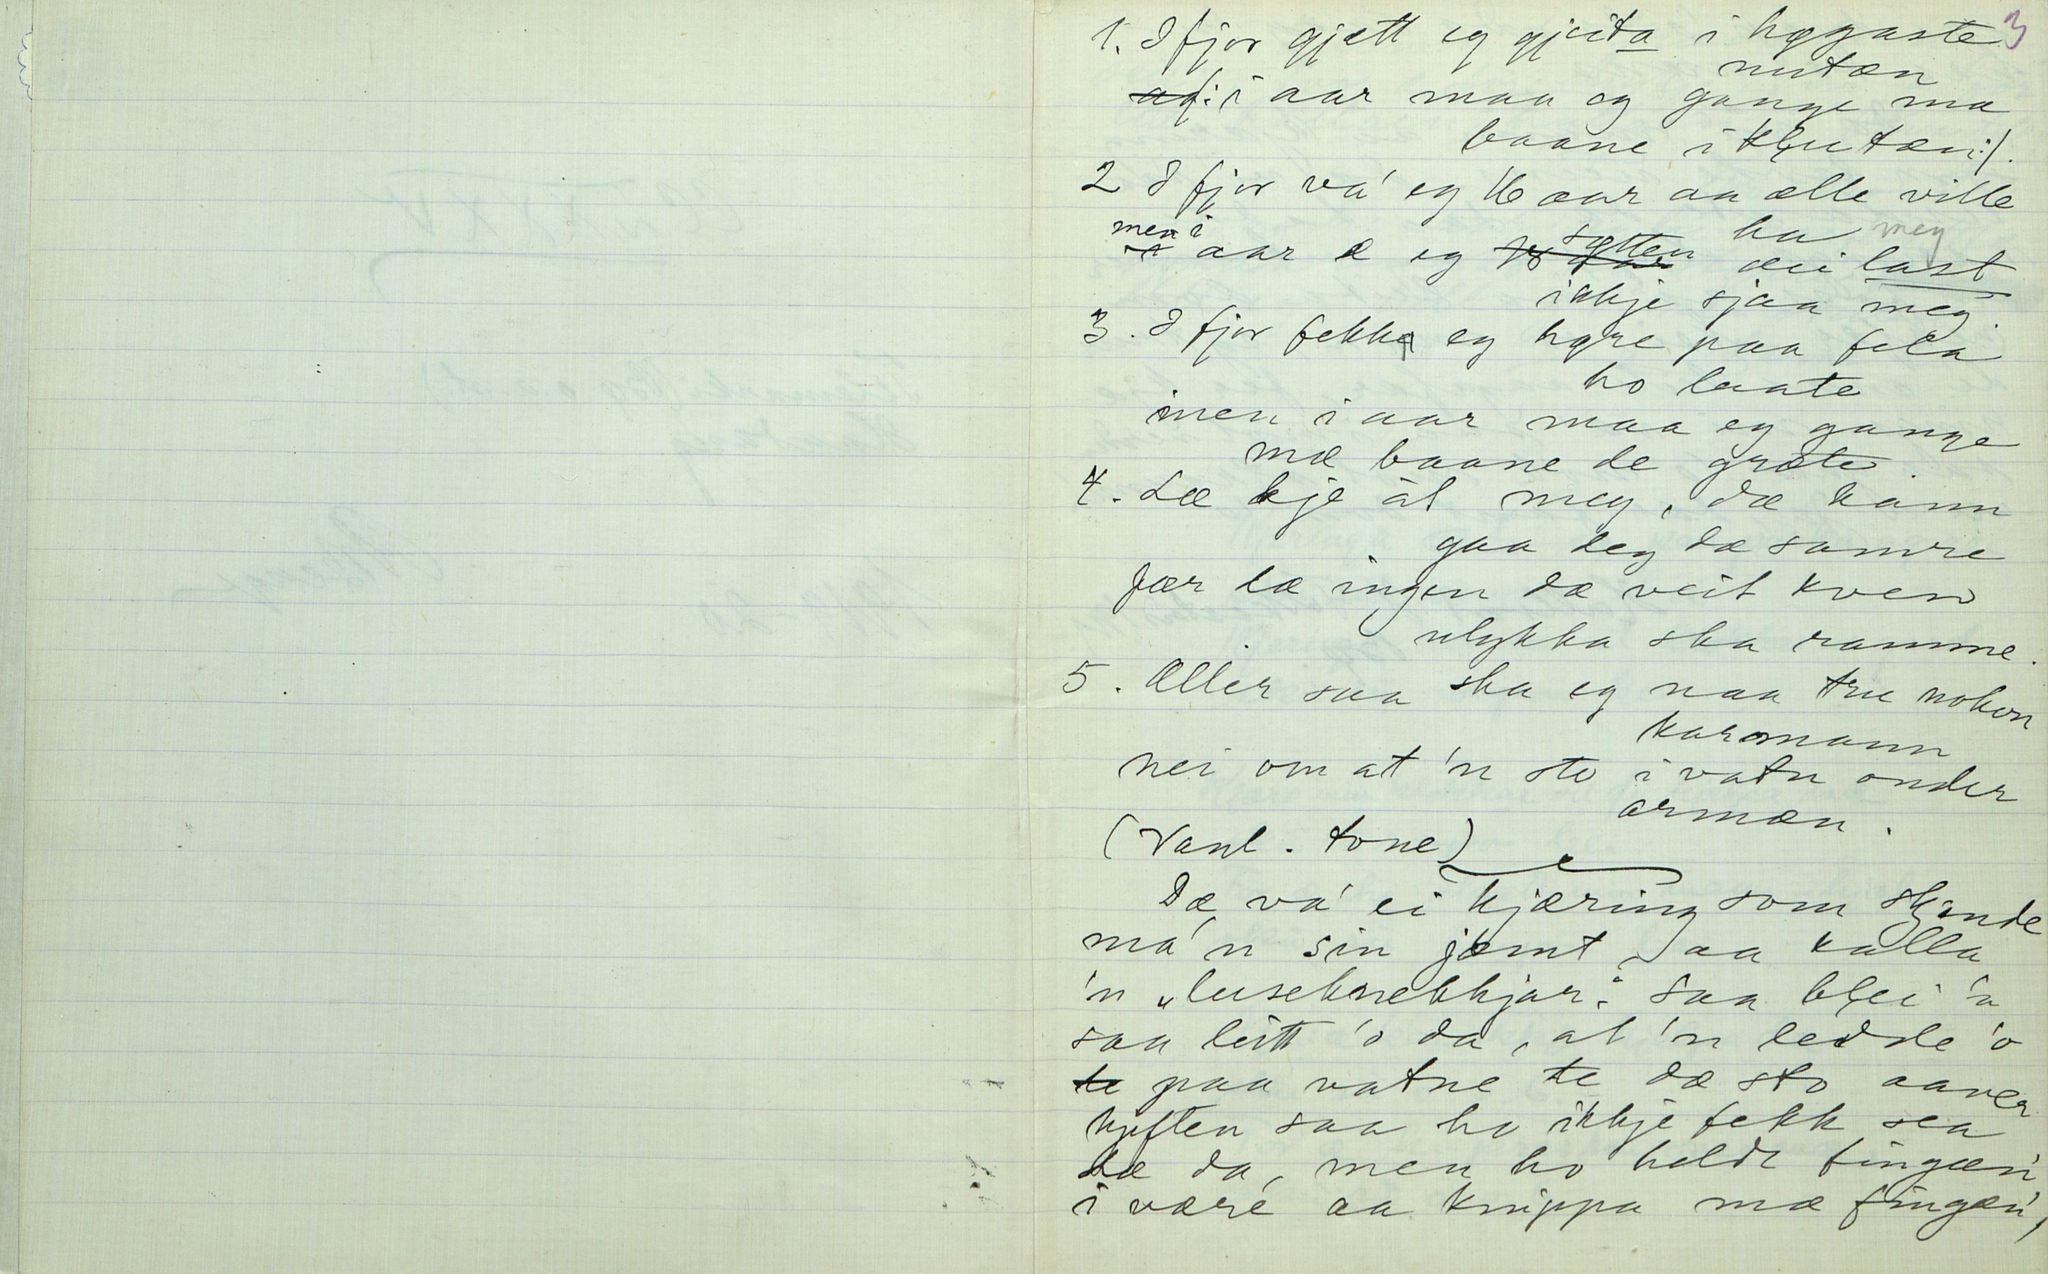 3
1. I fjor gjætt eg gjeita i høgaste
nutæn
i aar maa eg gange mæ
baane i klutæn:/.
2 I fjor va' eg 16 aar aa ælle ville
ha meg
men i aar æ eg sytten æi last
ikkje sjaa meg.
3. I fjor fekk eg høre paa fela
ho laate
men i aar maa eg gange
mæ baane de græte.
4. Læ kje åt meg, dæ kann
gaa deg dæ samre
fær dæ ingen dæ veit kven
ulykka ska ramme.
5. Æller saa ska eg naa tru nokon
karmann
nei om at 'n sto i vatn onder
armæn.
(Vanl. tone)
Dæ va' ei kjæring som skjende
må'n sin jæmt, aa kalla
'n „luseknekkjar". Saa blei 'n
saa leitt 'o da, at 'n ledde 'o
paa vatne te dæ sto aaver
kjeften saa ho ikkje fekk sea
dæ da, men ho heldt fingæn'
i være' aa knippa mæ fingæn',